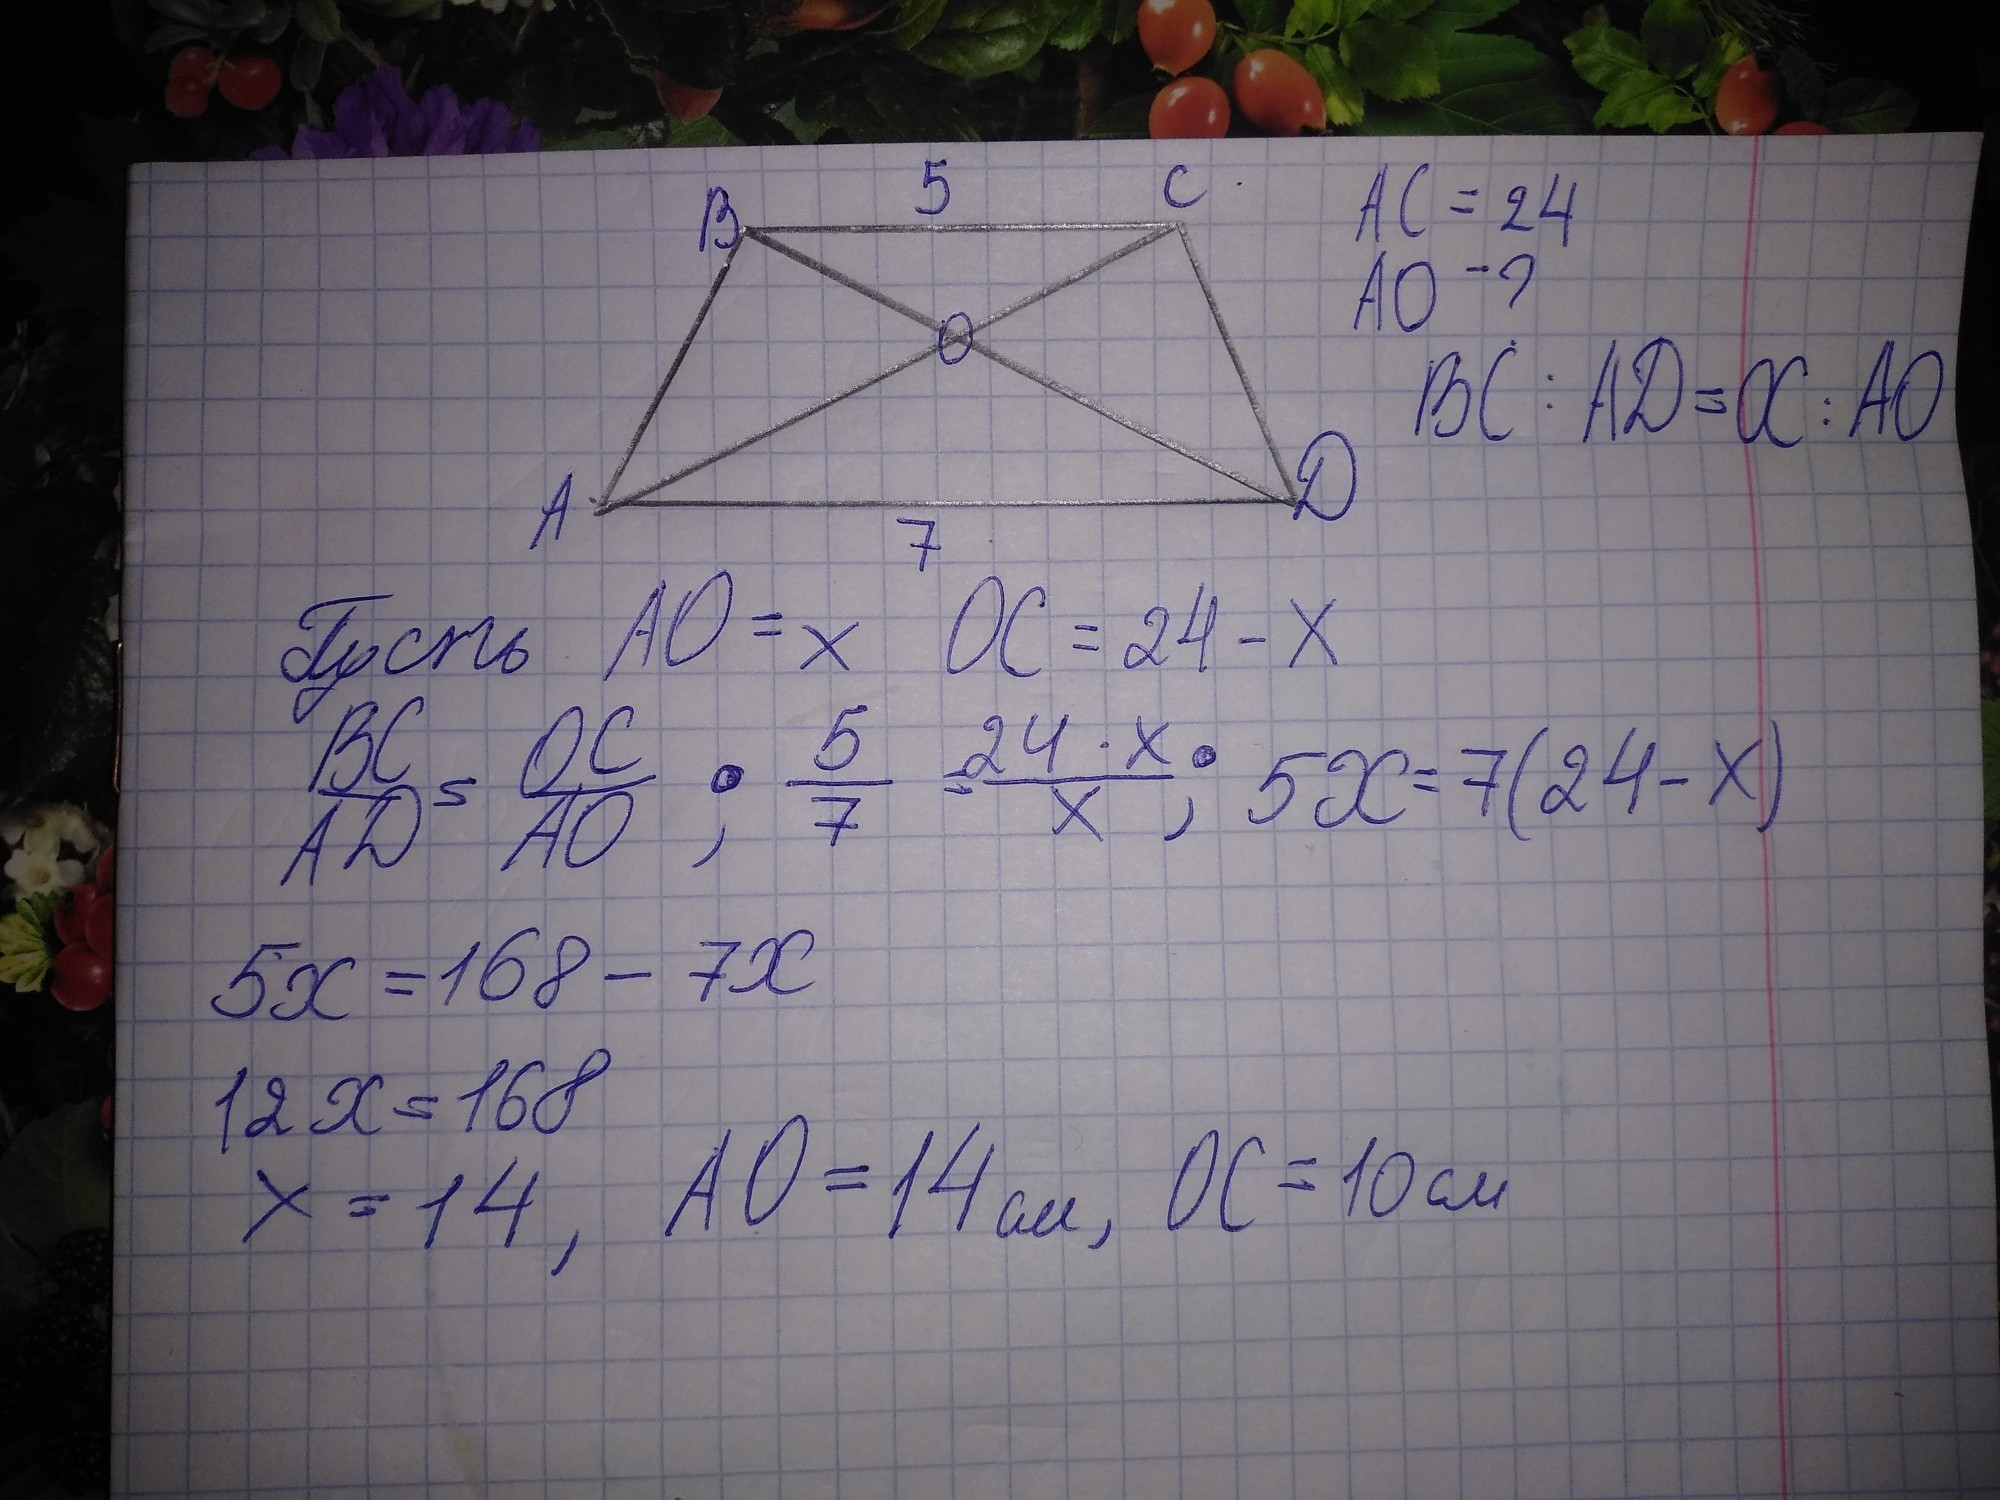 5
B C
AC = 24
AO - ?
O
BC : AD = OC : AO
A D
7
Пусть AO = x OC = 24 - x
BC/AD = OC/AO ; 5/7 = 24 - x/x ; 5x = 7(24 - x)
5x = 168 - 7x
12x = 168
x = 14, AO = 14 см, OC = 10 см